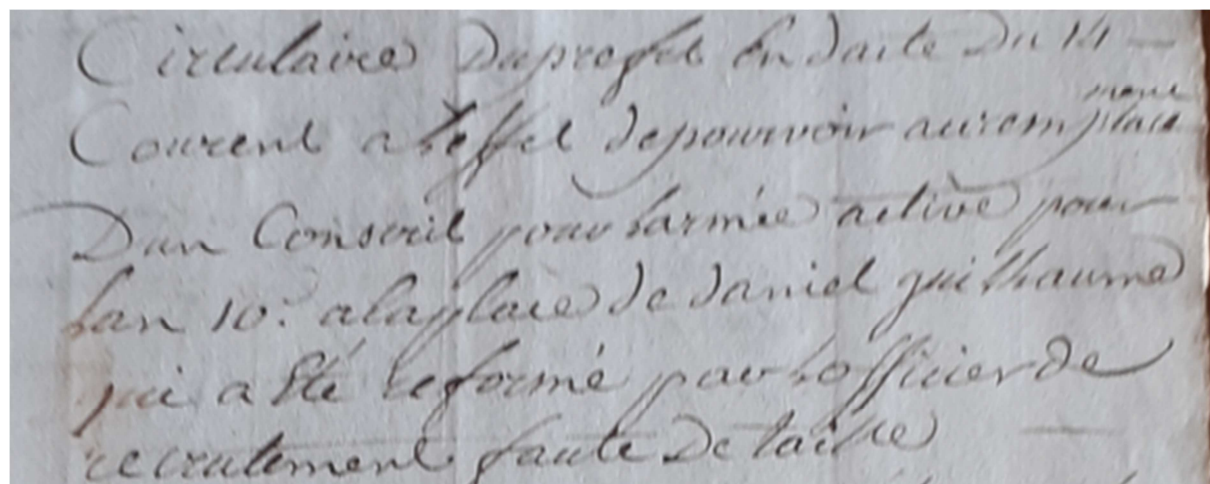 Circulaire Du prefet En date Du 14
Courent a Leffet de pourvoir au remplacement
Dun Conscrit pour Larmée active pour
Lan 10. a la place de daniel guilhaume
qui a Eté reformé par Lofficier de
recrutement faute De taille